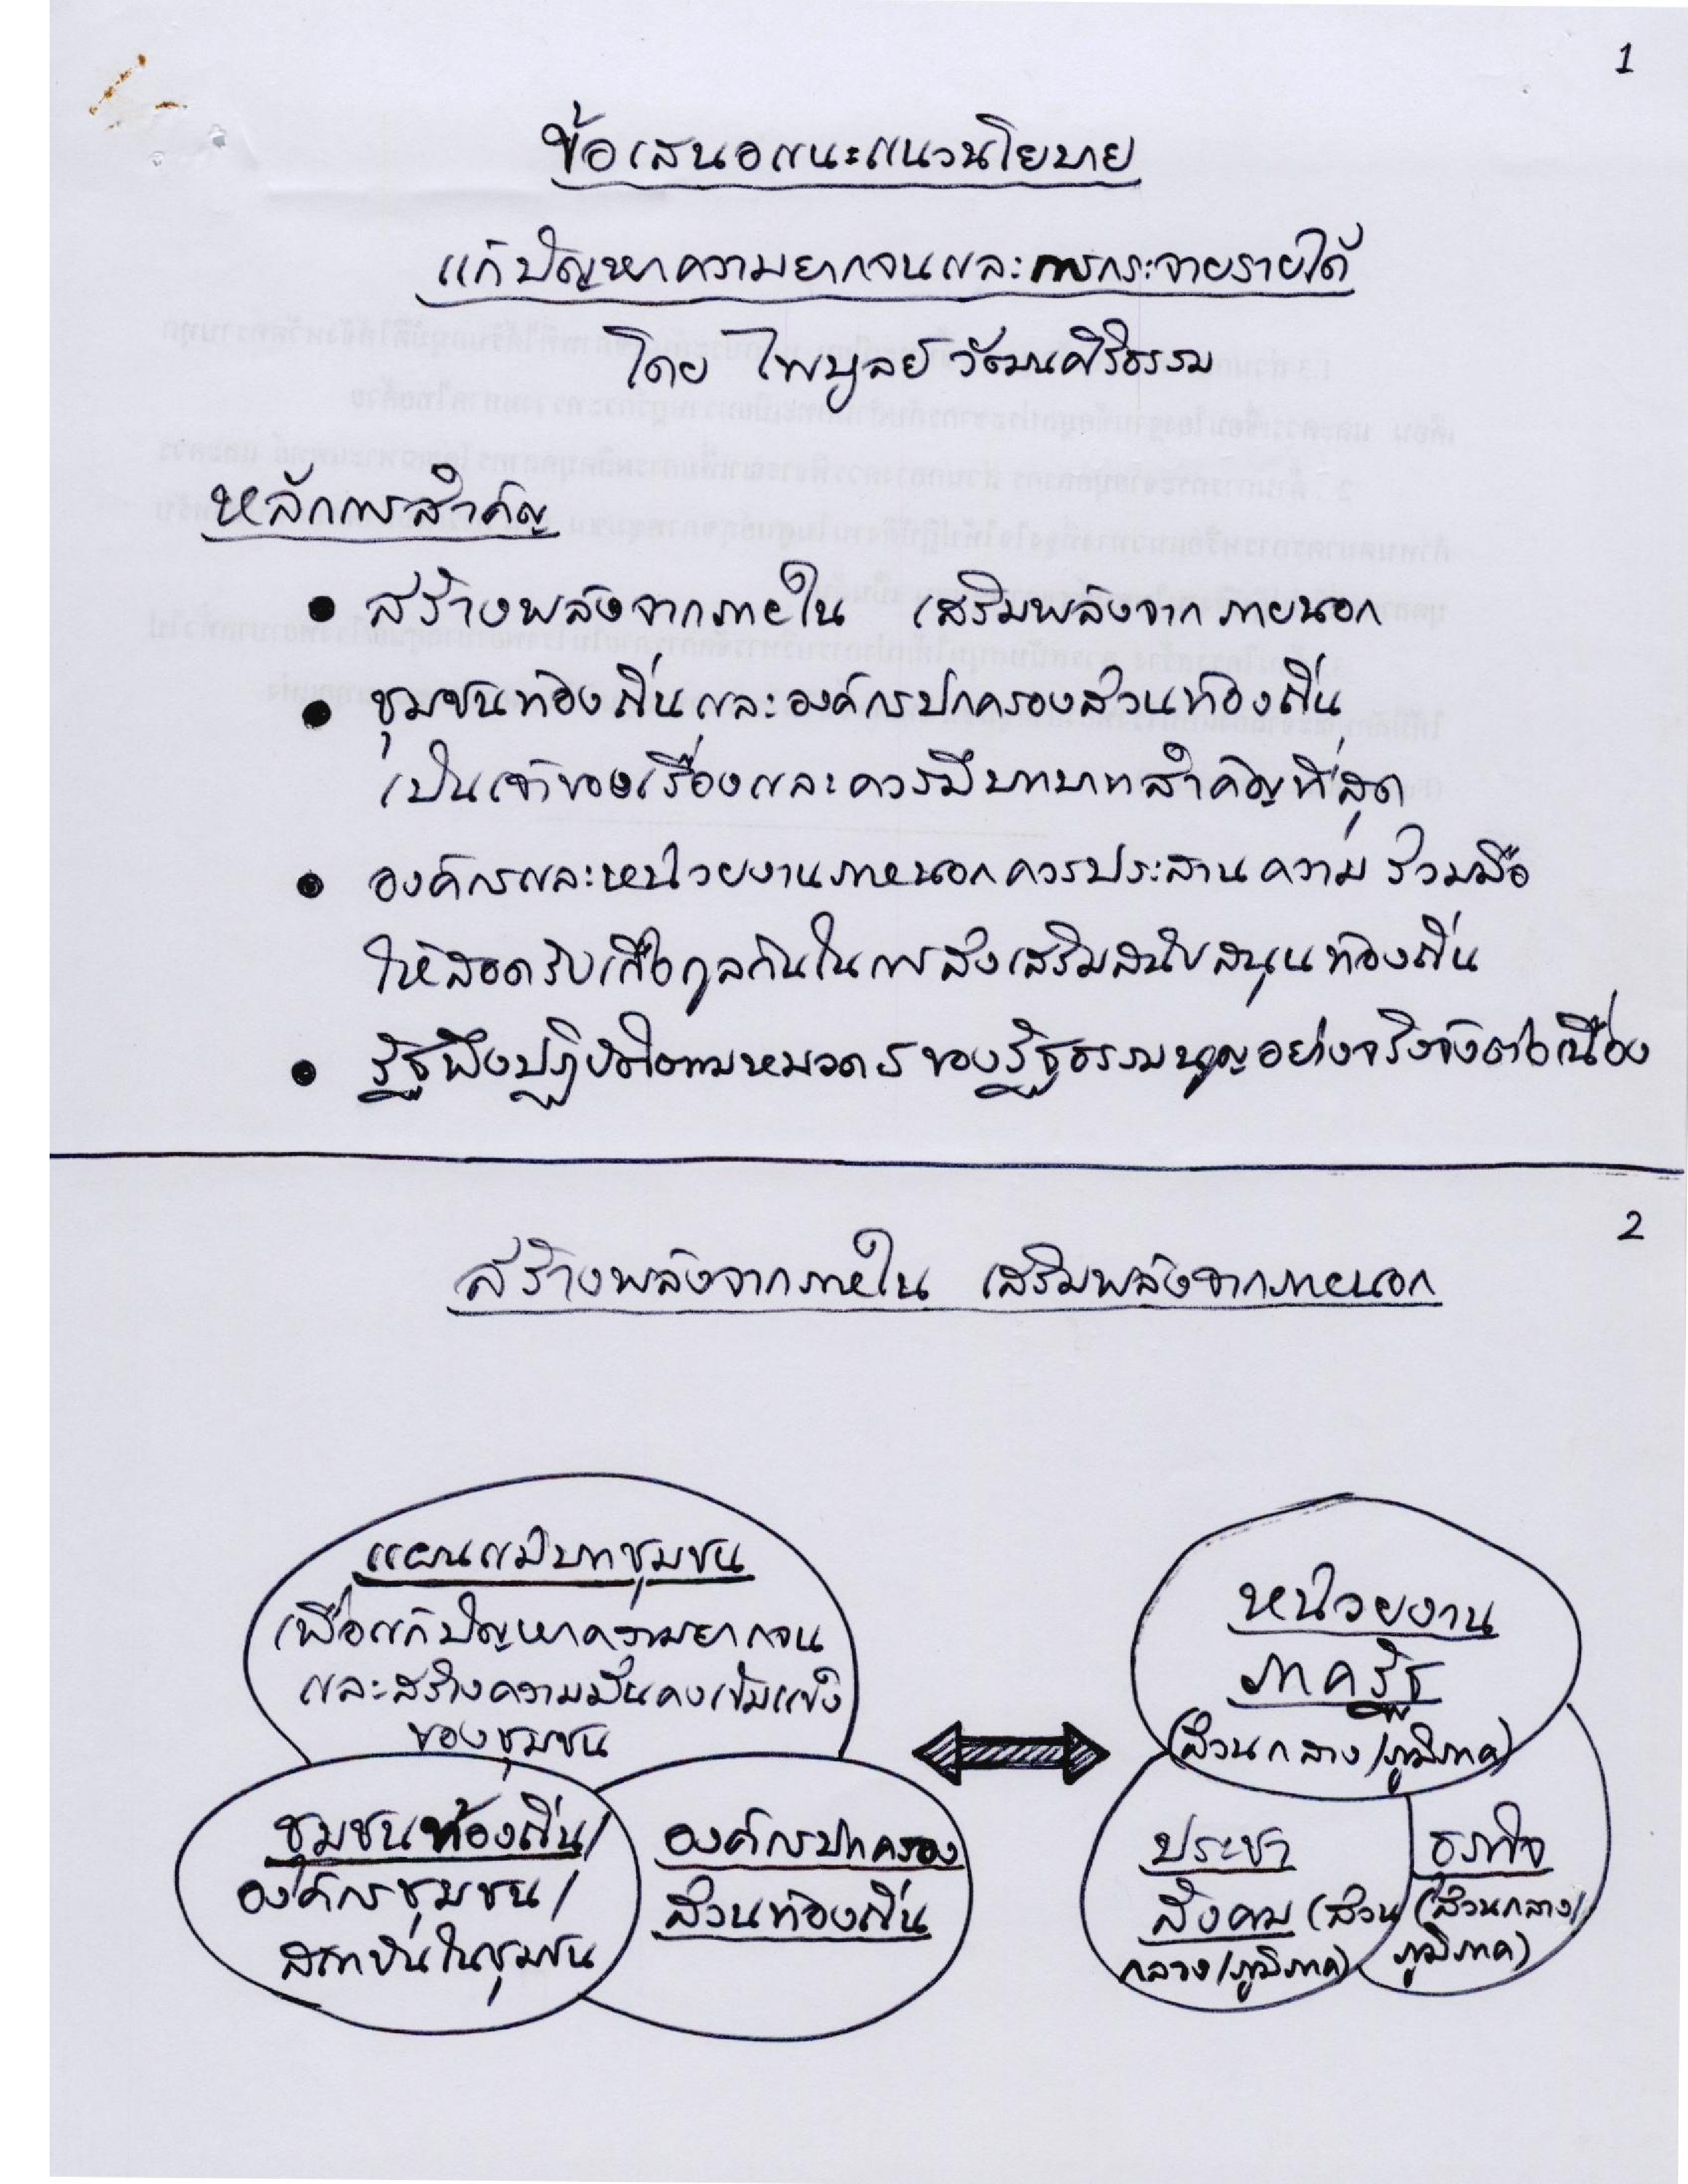 1
ข้อเสนอแนะแนวนโยบาย
แก้ปัญหาความยากจนและการกระจายรายได้
โดย ไพบูลย์ วัฒนศิริธรรม
หลักการสำคัญ
• สร้างพลังจากภายใน เสริมพลังจากภายนอก
• ชุมชนท้องถิ่นและองค์กรปกครองส่วนท้องถิ่น
เป็นเจ้าของเรื่องและควรมีบทบาทสำคัญที่สุด
• องค์กรและหน่วยงานภายนอกควรประสานความร่วมมือ
ให้สอดรับเกื้อกูลกันในการส่งเสริมสนับสนุนท้องถิ่น
• รัฐพึงปฏิบัติตามหมวด 5 ของรัฐธรรมนูญอย่างจริงจังต่อเนื่อง
2
สร้างพลังจากภายใน เสริมพลังจากภายนอก
แผนแม่บทชุมชน
เพื่อแก้ปัญหาความยากจน
และสร้างความมั่นคงเข้มแข็ง
ของชุมชน
ชุมชนท้องถิ่น/
องค์กรชุมชน/
สถาบันในชุมชน
องค์กรปกครอง
ส่วนท้องถิ่น
หน่วยงาน
ภาครัฐ
(ส่วนกลาง/ภูมิภาค)
ประชา
สังคม (ส่วน
กลาง/ภูมิภาค)
ธุรกิจ
(ส่วนกลาง/
ภูมิภาค)